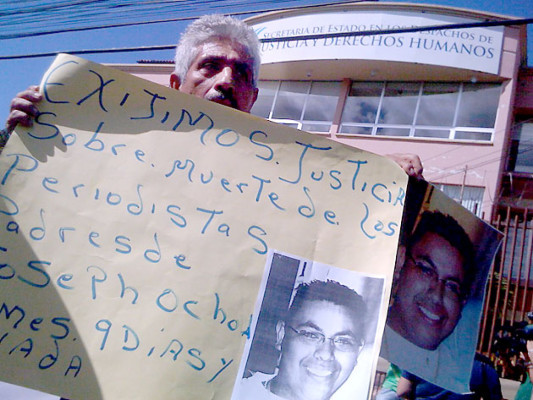 SECRETARIA DE ESTADO EN LOS DESPACHOS DE
JUSTICIA Y DERECHOS HUMANOS
EXIJIMOS. JUSTICIA
Sobre. MUERTE. DE. LOS
PERIODISTAS
Padres de
JOSEPH OCHOA
MES. 9 DIAS y
NADA